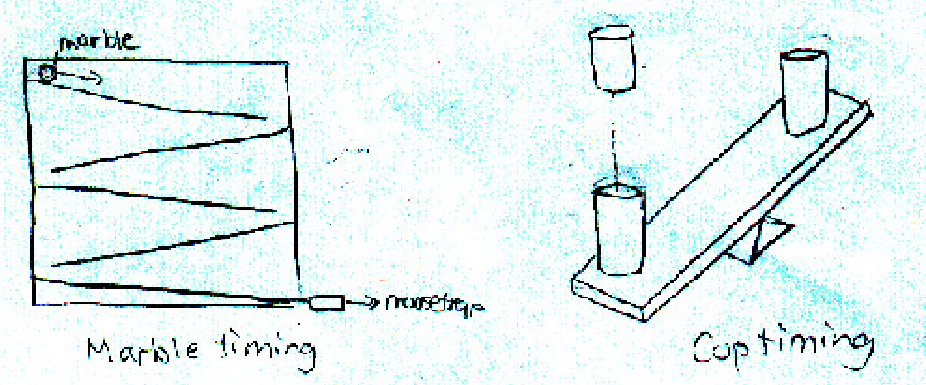 marble
mousetrap
Marble timing
Cup timing